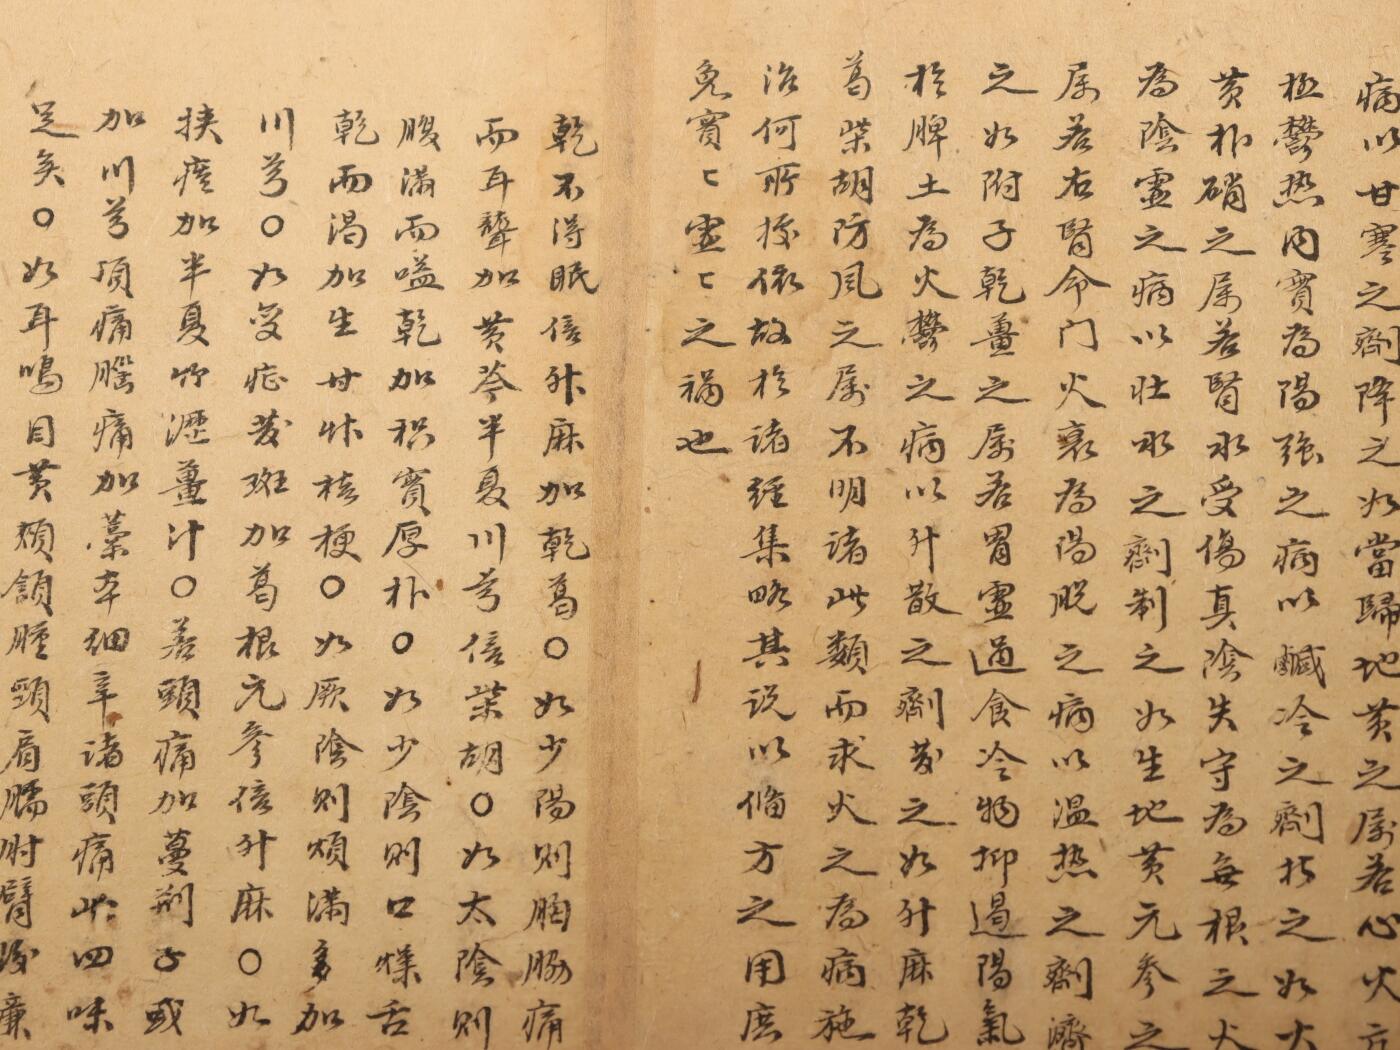 病以甘寒之劑降之如當歸地黃之属若心火亢
極鬱热內實為陽強之病以鹹冷之劑折之如大
黃朴硝之属若腎水受傷真陰失守為無根之火
為陰虛之病以壮水之劑制之如生地黃元参之
属若右腎命门火衰為陽脱之病以温热之劑濟
之如附子乾薑之属若胃虛過食冷物抑遏陽氣
於脾土為火鬱之病以升散之劑发之如升麻乾
葛柴胡防風之属不明諸此類而求火之為病施
治何所據依故於诸经集略其说以俻方之用庶
免實〻虛〻之禍也
乾不得眠倍升麻加乾葛○如少陽则胸脇痛
而耳聾加黄芩半夏川芎倍柴胡○如太陰则
腹滿而嗌乾加枳實厚朴○如少陰则口燥舌
乾而渴加生甘草桔梗○如厥陰则煩滿多加
川芎○如变症发斑加葛根元参倍升麻○如
挟痰加半夏竹瀝薑汁○若頭痛加蔓荆子或
加川芎頂痛腦痛加藁本细辛诸頭痛此四味
足矣○如耳鳴目黄頰頷腫頸肩臑肘臂後廉